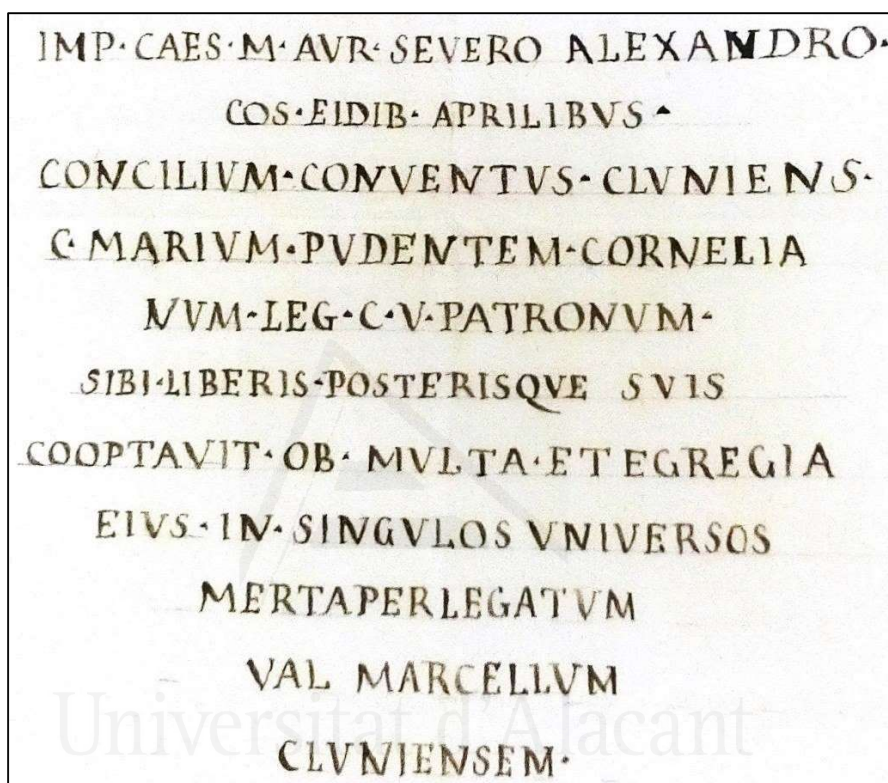 IMP·CAES·M·AVR·SEVERO ALEXANDRO·
COS·EIDIB·APRILIBVS·
CONCILIVM·CONVENTVS·CLVNIENS·
C·MARIVM·PVDENTEM·CORNELIA
NVM·LEG·C·V·PATRONVM·
SIBI·LIBERIS·POSTERISQVE SVIS
COOPTAVIT·OB·MVLTA·ET EGREGIA
EIVS·IN·SINGVLOS VNIVERSOS
MERTAPERLEGATVM
VAL MARCELLVM
Universitat d'Alacant
CLVNIENSEM·